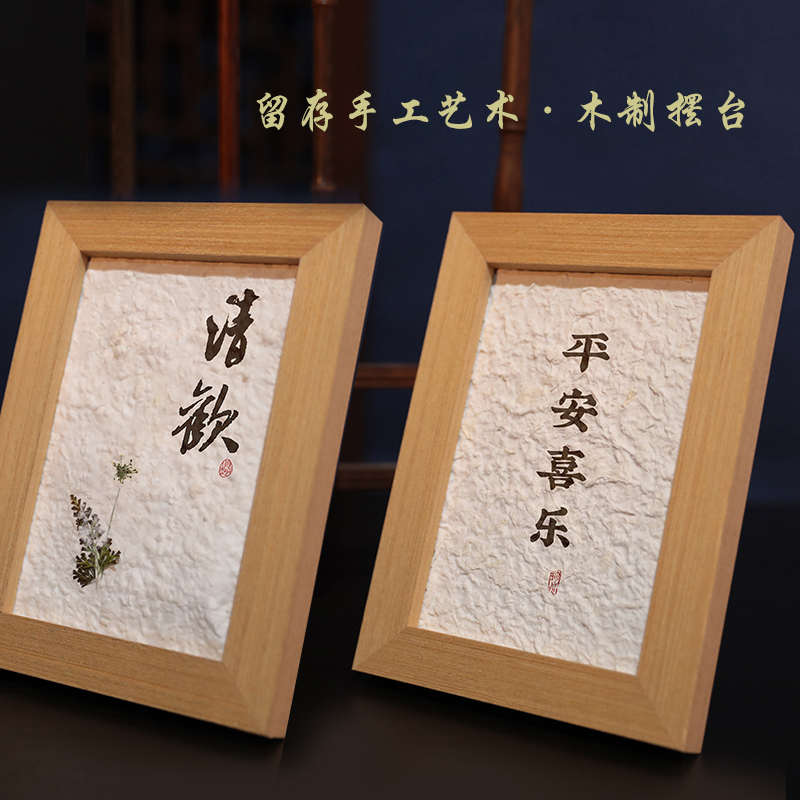 留存手工艺术·木制摆台
清歡
平安喜乐